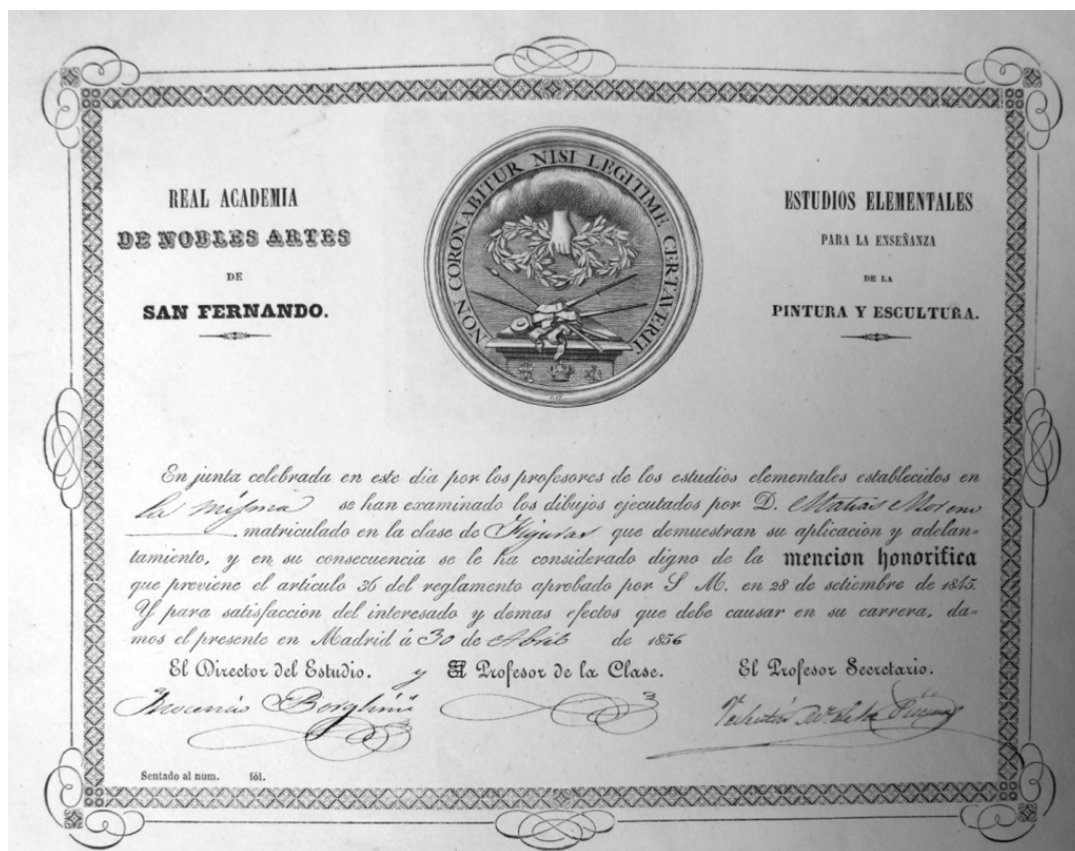 REAL ACADEMIA
DE NOBLES ARTES
DE
SAN FERNANDO.
NON CORONABITUR NISI LEGITIME CERTAVERIT
ESTUDIOS ELEMENTALES
PARA LA ENSEÑANZA
DE LA
PINTURA Y ESCULTURA.
En junta celebrada en este dia por los profesores de los estudios elementales establecidos en
la misma se han examinado los dibujos ejecutados por D. Matias Moreno
matriculado en la clase de Figuras que demuestran su aplicacion y adelan-
tamiento, y en su consecuencia se le ha considerado digno de la mencion honorifica
que previene el artículo 36 del reglamento aprobado por S M. en 28 de setiembre de 1845.
Y para satisfaccion del interesado y demas efectos que debe causar en su carrera, da-
mos el presente en Madrid á 30 de Abril de 1856
El Director del Estudio. y El Profesor de la Clase. El Profesor Secretario.
Borghini
Sentado al num. fól.